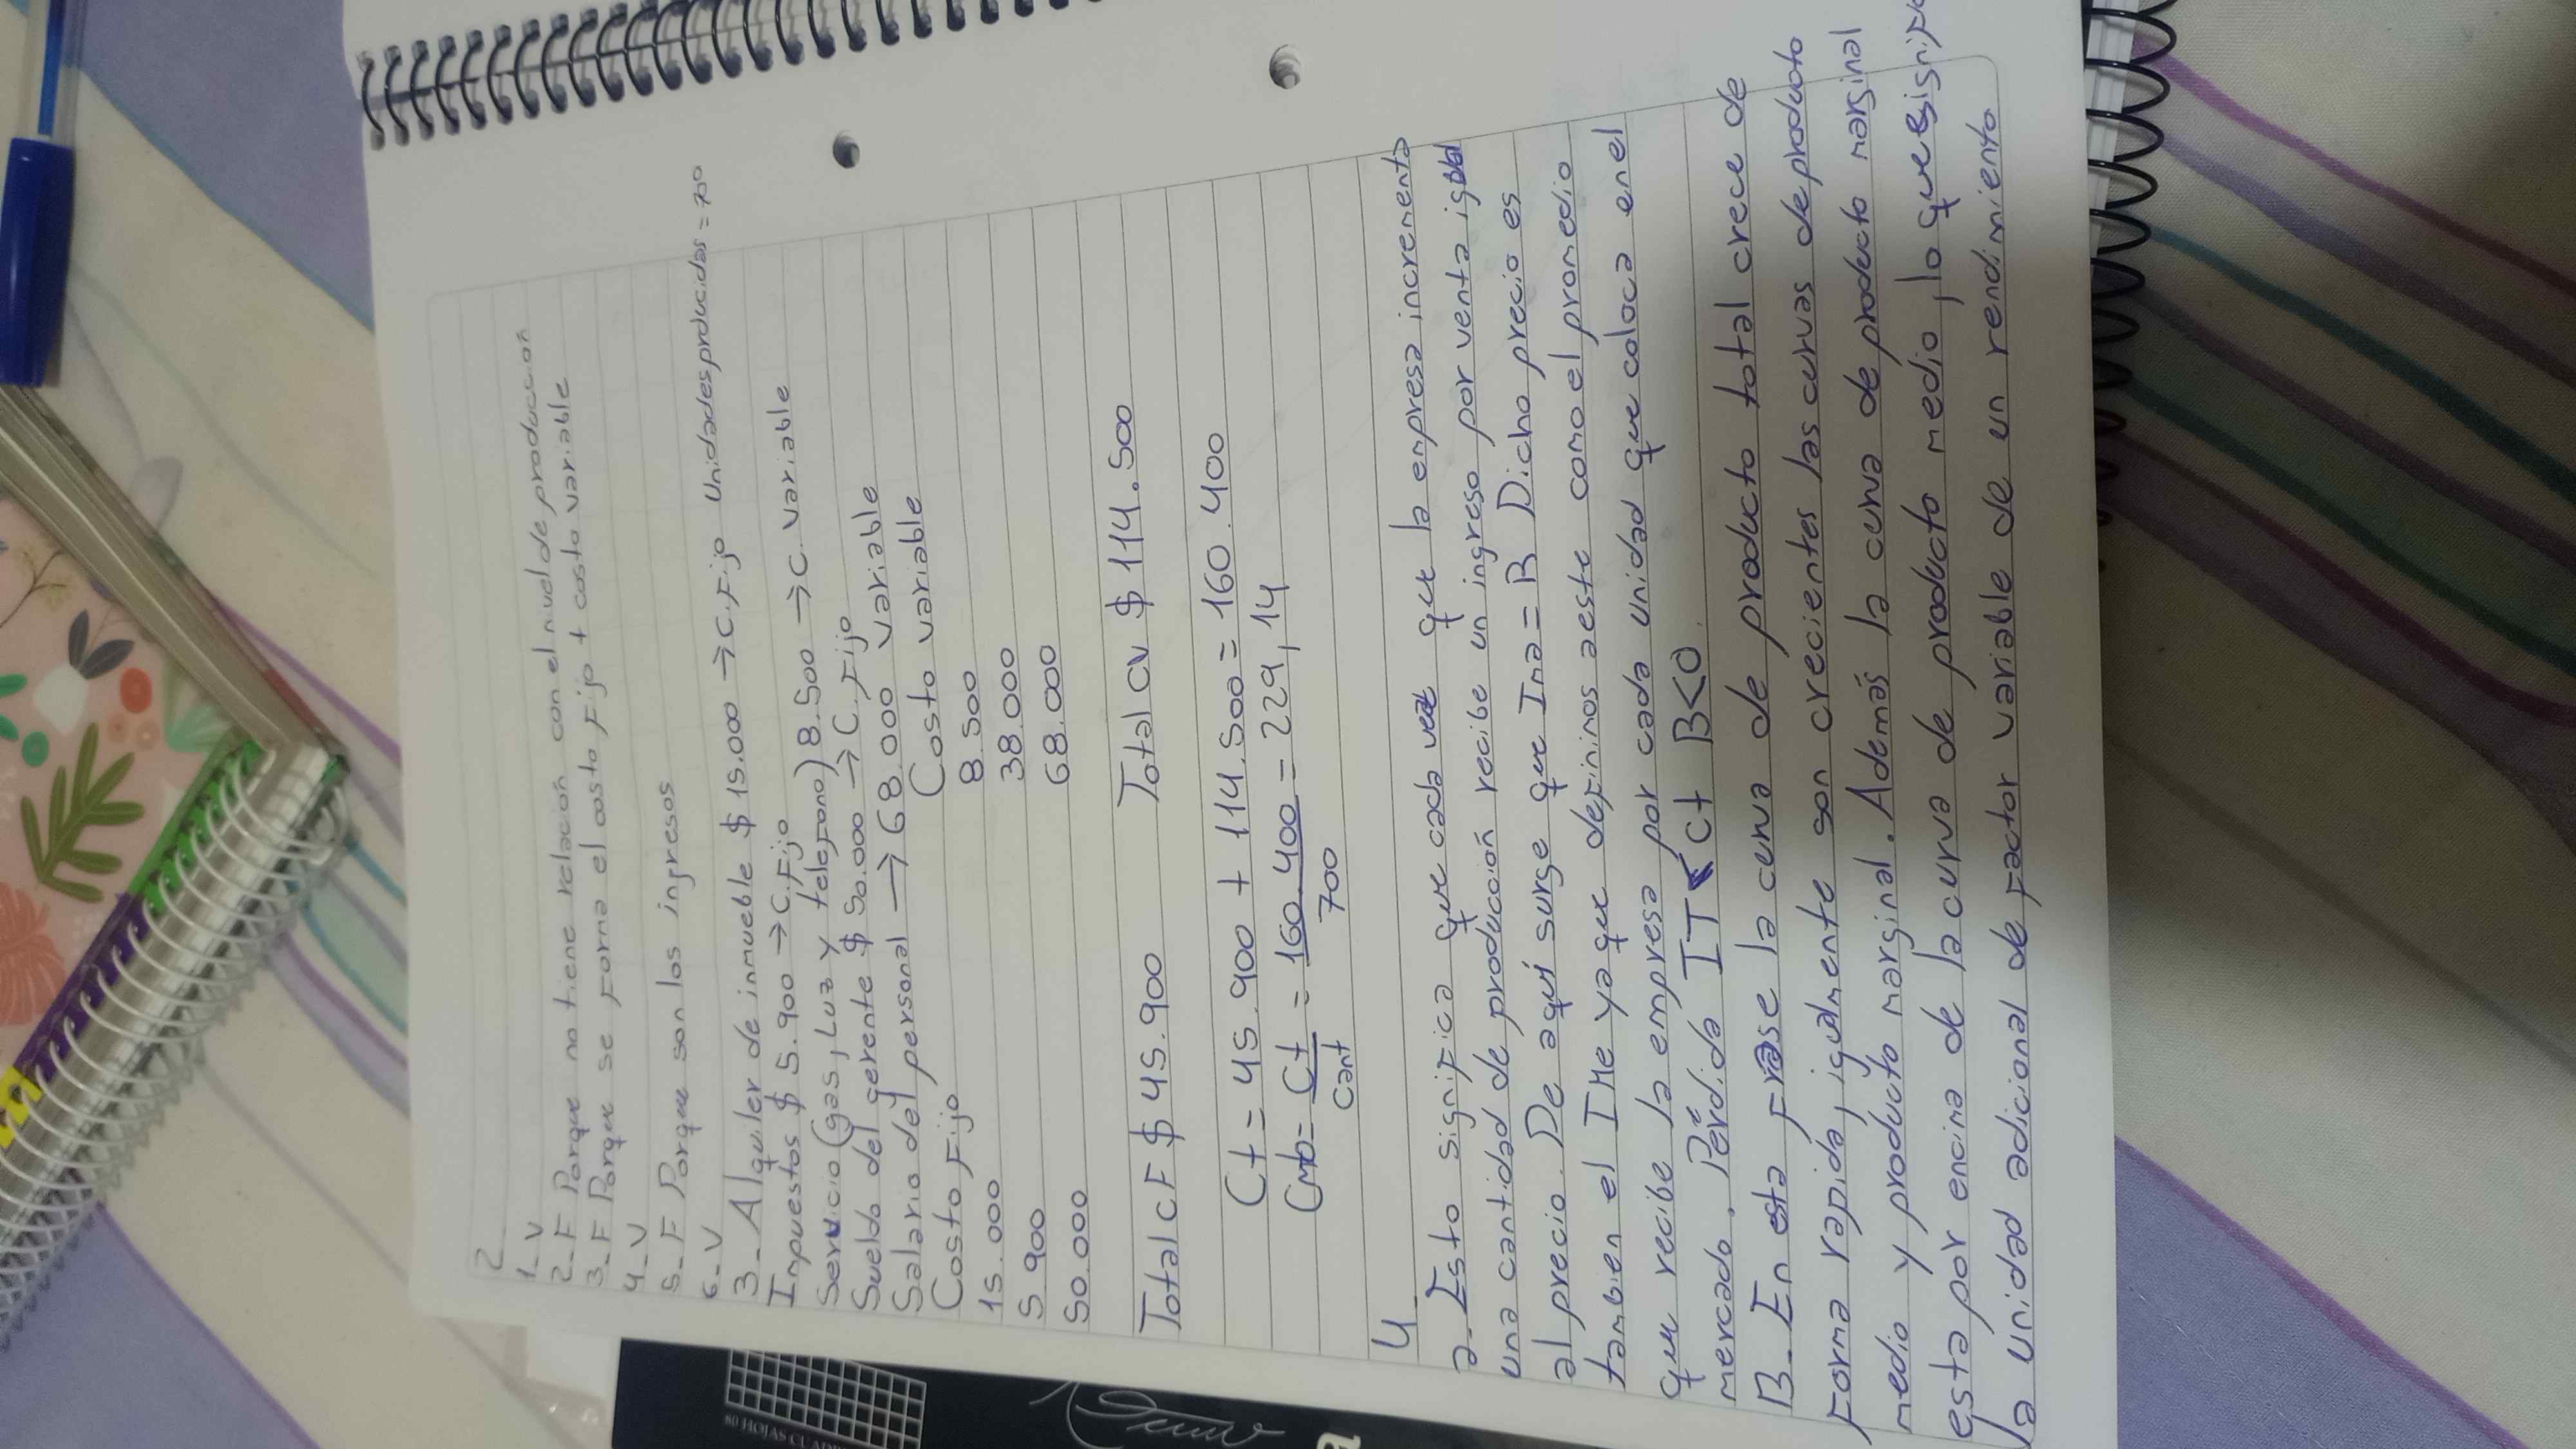 2
1_V
2_F Porque no tiene relación con el nivel de producción
3_F Porque se forma el costo fijo + costo variable
4_V
5_F Porque son los ingresos
6_V
3_Alquiler de inmueble $ 15.000 → C.Fijo Unidades producidas = 700
Impuestos $ 5.900 → C.Fijo
Servicio (gas, Luz y télefono) 8.500 → C. variable
Sueldo del gerente $ 50.000 → C. Fijo
Salario del personal → 68.000 variable
Costo Fijo Costo variable
15.000 8.500
5 900 38.000
50.000 68.000
Total CF $ 45.900 Total CV $ 114.500
Ct = 45.900 + 114.500 = 160.400
Cmo = Ct = 160.400 = 229,14
Cant 700
4
a_ Esto significa que cada vez que la empresa incrementa
una cantidad de producción recibe un ingreso por venta igual
al precio. De aquí surge que Ima = B Dicho precio es
tambien el IMe ya que definimos a este como el promedio
que recibe la empresa por cada unidad que coloca en el
mercado. Pérdida IT < Ct B<0.
B_ En esta frase la curva de producto total crece de
forma rapida, igualmente son crecientes las curvas de producto
medio y producto marginal. Además la curva de producto marginal
esta por encima de la curva de producto medio, lo que
la unidad adicional de factor variable de un rendimiento
80 HOJAS